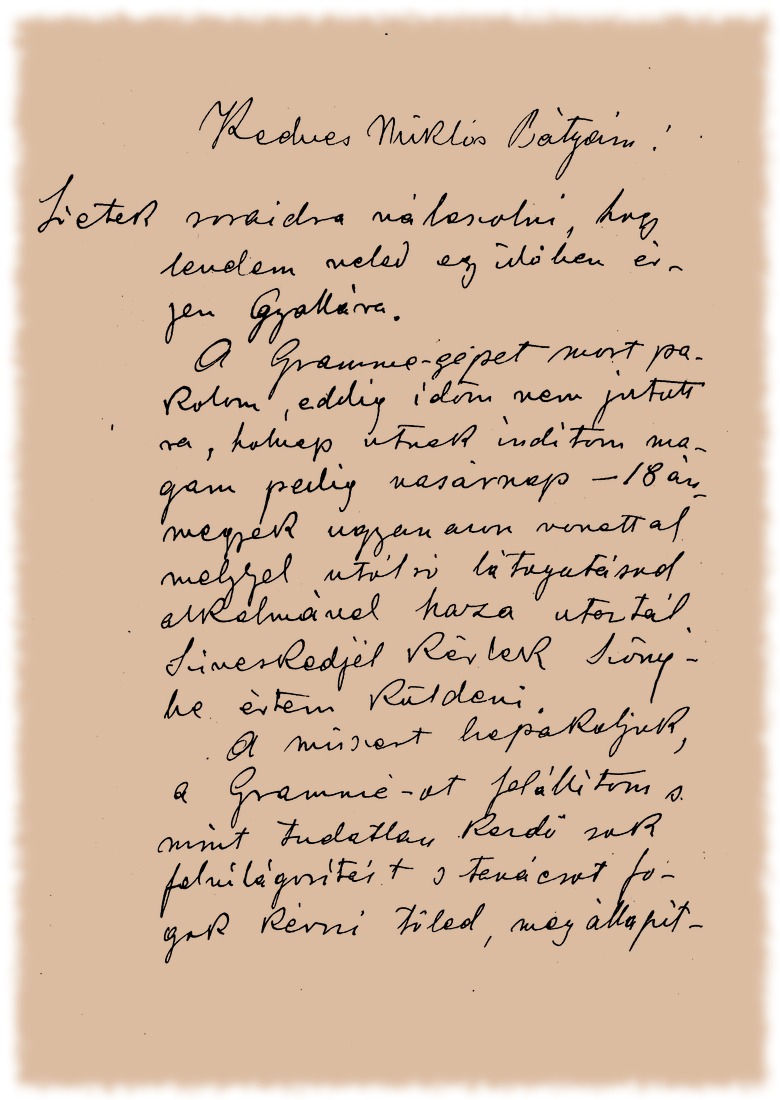 Kedves Miklós Bátyám!
Sietek soraidra válaszolni, hogy
levelem veled egy időben ér-
jen Gyallára.
A Gramme-gépet most pa-
kolom, eddig időm nem jutott
rá, holnap utnak inditom ma-
gam pedig vasárnap – 18án
megyek ugyanazon vonattal
melylyel utólsó látogatásod
alkalmával haza utaztál.
Sziveskedjél kérlek Szőny-
be értem küldeni.
A műszert bepakoljuk,
a Gramme-ot felállitom s
mint tudatlan kezdő sok
felvilágositást s tanácsot fo-
gok kérni tőled, megállapit-